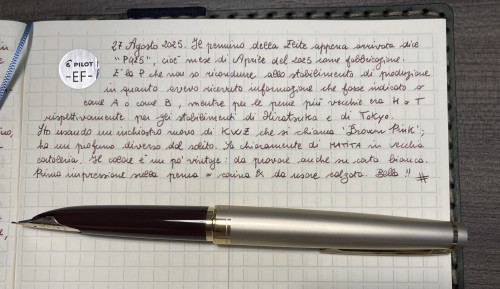 27 Agosto 2025. Il pennino della Elite appena arrivata dice
"P425", cioè mese di Aprile del 2025 come fabbricazione.
E' la P che non so ricondurre allo stabilimento di produzione
in quanto avevo ricevuto informazione che fosse indicato o
come A o come B, mentre per le penne più vecchie era H o T
rispettivamente per gli stabilimenti di Hiratsuka e di Tokyo.
Sto usando un inchiostro nuovo di KWZ che si chiama "Brown Pink";
ha un profumo diverso dal solito. Sa chiaramente di MATITA in vecchia
cartoleria. Il colore è un po' vintage: da provare anche su carta bianca.
Prima impressione sulla penna = carina & da usare calzata. Bella !! #
PILOT
-EF-